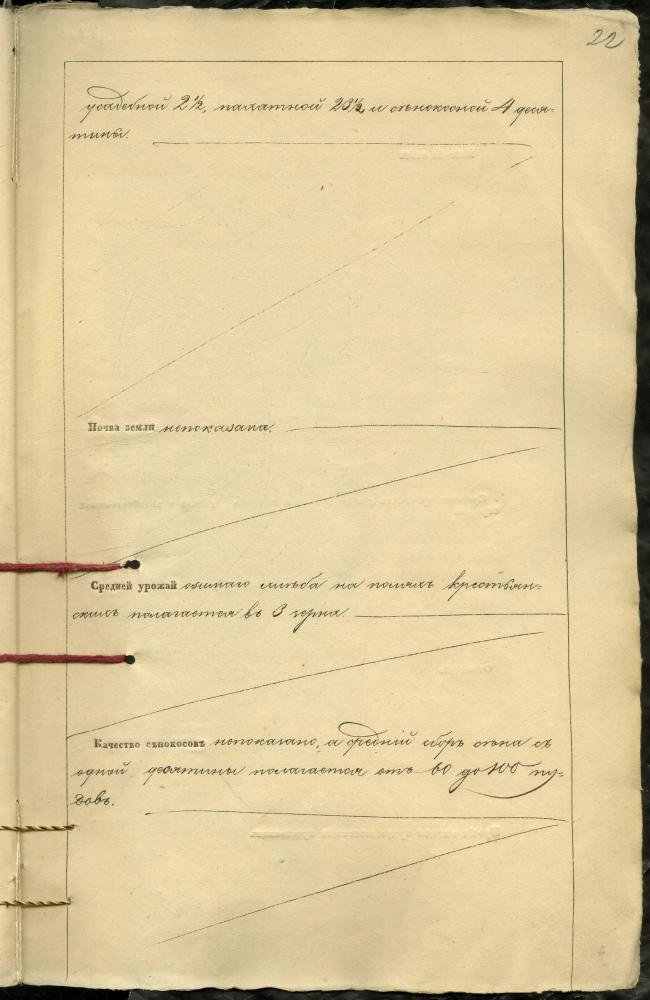 22
усадебной 2½, пахатной 23½ и сѣнокосной 4 деся-
тины.
Почва земли непоказана.
Средней урожай озимаго хлѣба на поляхъ крестьян-
скихъ полагается въ 3 зерна.
Качество сѣнокосовъ непоказано, а средній сборъ сѣна съ
одной десятины полагается отъ 60 до 100 пу-
довъ.